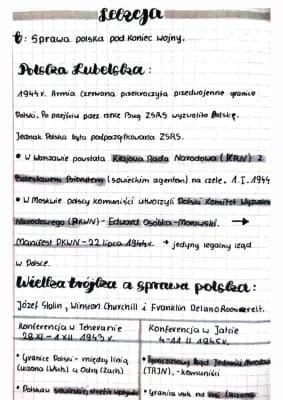 Lekcja
t: Sprawa polska pod koniec wojny.
Polska Lubelska:
1944r. Armia czerwona przekroczyła przedwojenne granice
Polski. Po przejściu przez rzekę Bug ZSRS wyzwoliło Polskę.
Jednak Polska była podporządkowana ZSRS.
• W Warszawie powstała Krajowa Rada Narodowa (KRN) z
Bolesławem Bierutem (sowieckim agentem) na czele. 1.I.1944
• W Moskwie polscy komuniści utworzyli Polski Komitet Wyzwole
Narodowego (PKWN) - Edward Osóbka-Morawski. →
Manifest PKWN - 22 lipca 1944r. → jedyny legalny rząd
w Polsce.
Wielka trójka a sprawa polska:
Józef Stalin, Winston Churchill i Franklin Delano Roosevelt.
Konferencja w Teheranie
28 XI - 1 XII 1943 r.
• Granice Polski - między linią
Curzona (Wsch) a Odrą (Zach)
• Polskau sowiecki strefie wpływów
Konferencja w Jałcie
4-11 II 1945r.
• Tymczasowy Rząd Jedności Narodow
(TRJN), - komuniści
• Granica wsch. na linii Curzona